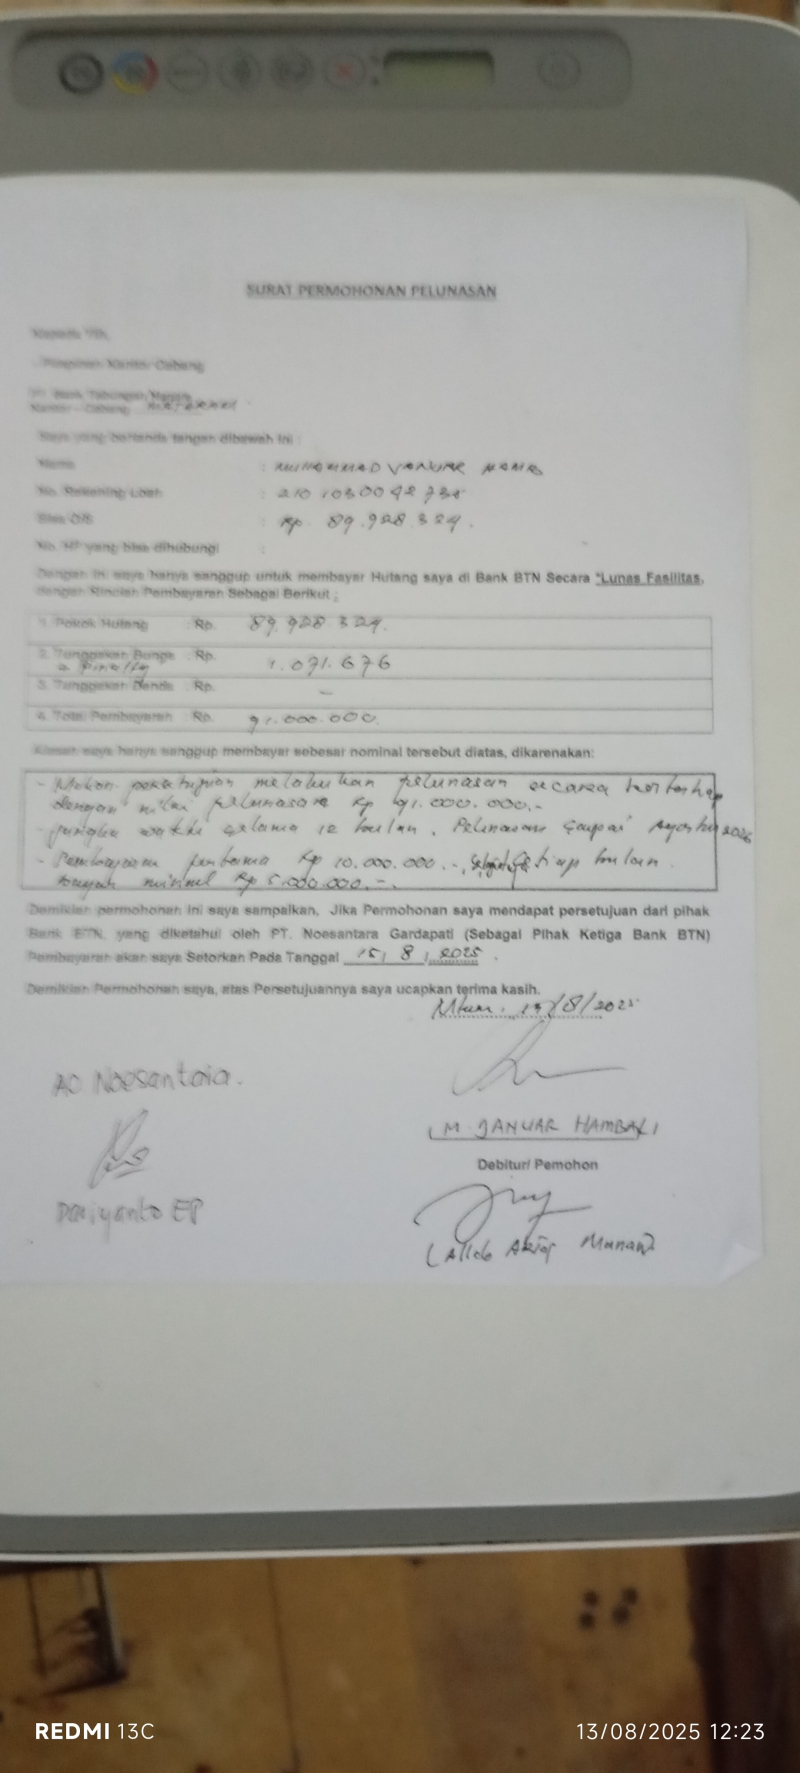 SURAT PERMOHONAN PELUNASAN
Kepada Yth,
Pimpinan Kantor Cabang
PT. Bank Tabungan Negara
Kantor Cabang MATARAM
Saya yang bertanda tangan dibawah ini :
Nama : MUHAMMAD
No. Rekening Loan :
Sisa O/S : Rp. 89.928.324.
No. HP yang bisa dihubungi :
Dengan ini saya hanya sanggup untuk membayar Hutang saya di Bank BTN Secara "Lunas Fasilitas,
dengan Rincian Pembayaran Sebagai Berikut ;
1. Pokok Hutang Rp. 89.928.324.
2. Tunggakan Bunga Rp. 1.071.676
& pinalty
3. Tunggakan Denda Rp. -
4. Total Pembayaran Rp. 91.000.000
Alasan saya hanya sanggup membayar sebesar nominal tersebut diatas, dikarenakan:
- Mohon persetujuan melakukan pelunasan secara bertahap
dengan nilai pelunasan Rp 91.000.000.-
- jangka waktu selama 12 bulan. Pelunasan sampai Agustus 2026
- Pembayaran pertama Rp 10.000.000.-, setiap bulan
minimal Rp 5.000.000.-.
Demikian permohonan ini saya sampaikan, Jika Permohonan saya mendapat persetujuan dari pihak
Bank BTN, yang diketahui oleh PT. Noesantara Gardapati (Sebagai Pihak Ketiga Bank BTN)
Pembayaran akan saya Setorkan Pada Tanggal 15/ 8 /2025 .
Demikian Permohonan saya, atas Persetujuannya saya ucapkan terima kasih.
/8/2025
AO Noesantara.
(M. JANUAR HAMBALI)
Debitur/ Pemohon
EP
REDMI 13C
13/08/2025 12:23